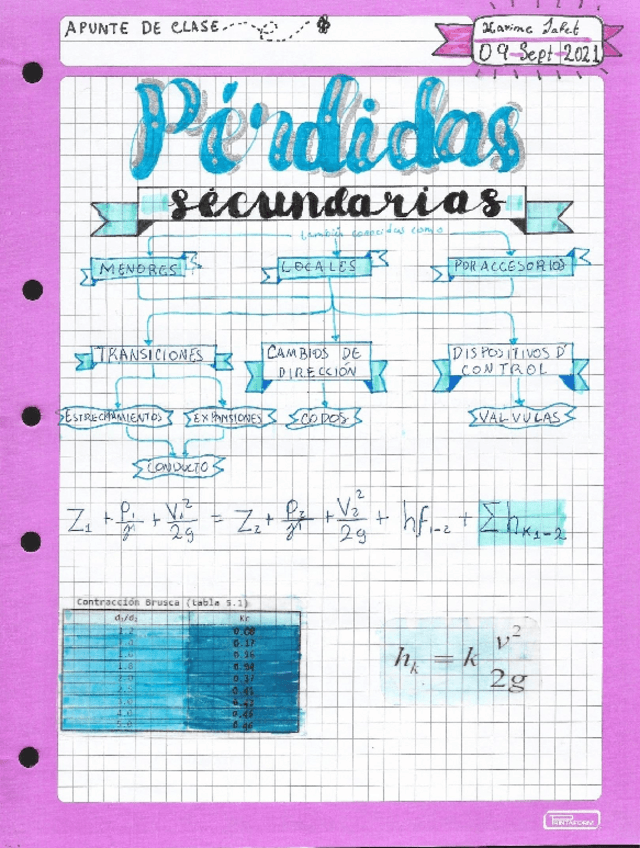 APUNTE DE CLASE
09-Sept-2021
Pérdidas
secundarias
también conocidas como
MENORES LOCALES POR ACCESORIOS
TRANSICIONES CAMBIOS DE DIRECCIÓN DISPOSITIVOS D' CONTROL
ESTRECHAMIENTOS EXPANSIONES CODOS VALVULAS
CONDUCTO
Z₁ + P₁/γ + V₁²/2g = Z₂ + P₂/γ + V₂²/2g + hf₁₋₂ + Σhk₁₋₂
Contracción Brusca (tabla 5.1)
d₁/d₂ Kc
1.2 0.08
0.17
1.8 0.34
2.0 0.37
0.41
0.45
0.46
hₖ = k v²/2g